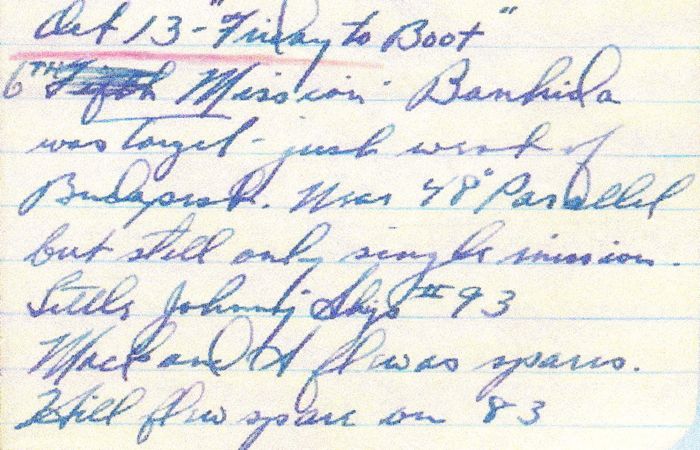 Oct 13 - "Friday to Boot"
6TH Fifth Mission Banhida
was target - just west of
Budapest. Near 48° Parallel
but still only single mission.
Little Johnny Ship # 93
Mack and I flew as spares.
Hill flew spare on 83